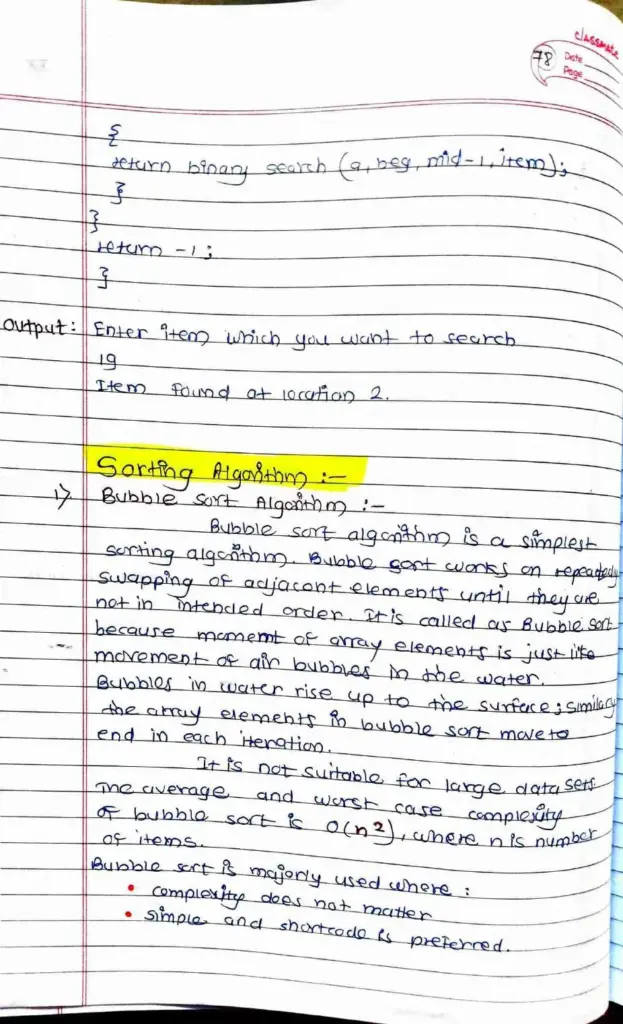 classmate
78
Date
Page
{
return binary search (a, beg, mid-1, item);
}
}
return -1;
}
Output: Enter item which you want to search
19
Item found at location 2.
Sorting Algorithm :-
1) Bubble sort Algorithm :-
Bubble sort algorithm is a simplest
sorting algorithm. Bubble sort works on repeatedly
swapping of adjacent elements until they are
not in intended order. It is called as Bubble sort
because momemt of array elements is just like
movement of air bubbles in the water.
Bubbles in water rise up to the surface; similary
the array elements in bubble sort move to
end in each iteration.
It is not suitable for large data sets
The average and worst case complexity
of bubble sort is O(n²), where n is number
of items.
Bubble sort is majorly used where :
• complexity does not matter
• simple and shortcode is preferred.